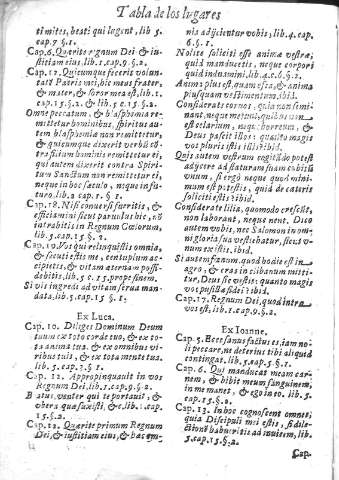 Tabla de los lugares
timites, beati qui lugent, lib. 5.
cap. 7. §. 1.
Cap. 6. Quærite regnum Dei & iu-
stitiam eius, lib. 1. cap. 9. §. 2.
Cap. 12. Quicumque fecerit volun-
tatē Patris mei, hic meus frater,
& mater, & soror mea est, lib. 1.
cap. 15. §. 2. & lib. 5 c. 15. §. 2.
Omne peccatum, & blasphemia re-
mittetur hominibus, spiritus au-
tem blasphemiæ non remittetur,
& quicumque dixerit verbū cō-
tra filium hominis remittetur ei,
qui autem dixerit contra Spiri-
tum Sanctum non remittetur ei,
neque in hoc sæculo, neque in fu-
turo, lib. 2. cap. 1. §. 1.
Cap. 18. Nisi conuersi fueritis, &
efficiamini sicut paruulus hic, nō
intrabitis in Regnum Cœlorum,
lib. 5. cap. 15. §. 2.
Cap. 19. Vos qui reliquistis omnia,
& secuti estis me, centuplum ac-
cipietis, & vitam æternam possi-
debitis, lib. 5 c. 15. prope finem.
Si vis ingredi ad vitam serua man-
data, lib. 5. cap. 15 §. 1.
Ex Luca.
Cap. 10. Diliges Dominum Deum
tuum ex toto corde tuo, & ex to-
ta anima tua, & ex omnibus vi-
ribus tuis, & ex tota mente tua.
lib. 5. cap. 7. §. 1
Cap. 12. Appropinquauit in vos
Regnum Dei, lib. 1. cap. 9. §. 2.
Beatus venter qui te portauit, &
vbera quæ suxisti, &c. lib. 1. cap.
15. §. 2.
Cap. 12. Quærite primum Regnum
Dei, & iustitiam eius, & hæc om-
nia adijcientur vobis, lib. 4. cap.
6. §. 1.
Nolite soliciti esse animæ vestræ,
quid manducetis, neque corpori
quid induamini, lib. 4. c. 6. §. 2.
Anima plus est, quam esca, & anima
plusquam vestimentum, ibid.
Considerate coruos, quia non semi-
nant, neque metunt, quibus non
est cellarium, neque horreum, &
Deus pascit illos: quanto magis
vos pluris estis illis? ibid.
Quis autem vestrum cogitādo potest
adijcere ad staturam suam cubitū
vnum, si ergo neque quod mini-
mum est potestis, quid de cæteris
soliciti estis? ibid.
Considerate lilia, quomodo crescūt,
non laborant, neque nent. Dico
autem vobis, nec Salomon in om-
ni gloria sua vestiebatur, sicut v-
num ex istis, ibid.
Si autem fænum, quod hodie est in
agro, & cras in clibanum mitti-
tur, Deus sic vestit: quanto magis
vos pusillæ fidei? ibid.
Cap. 17. Regnum Dei, quod intra
vos est, lib. 1. cap. 9. §. 2.
Ex Ioanne.
Cap. 5. Ecce sanus factus es, iam no-
li peccare, ne deterius tibi aliquid
contingat, lib. 5. cap. 15. §. 1.
Cap. 6. Qui manducat meam car-
nem, & bibit meum sanguinem,
in me manet, & ego in eo. lib. 5.
cap. 15. §. 2.
Cap. 13. In hoc cognoscent omnes,
quia Discipuli mei estis, si dile-
ctionē habueritis ad inuicem, lib.
5. cap. 15. §. 2.
Cap.